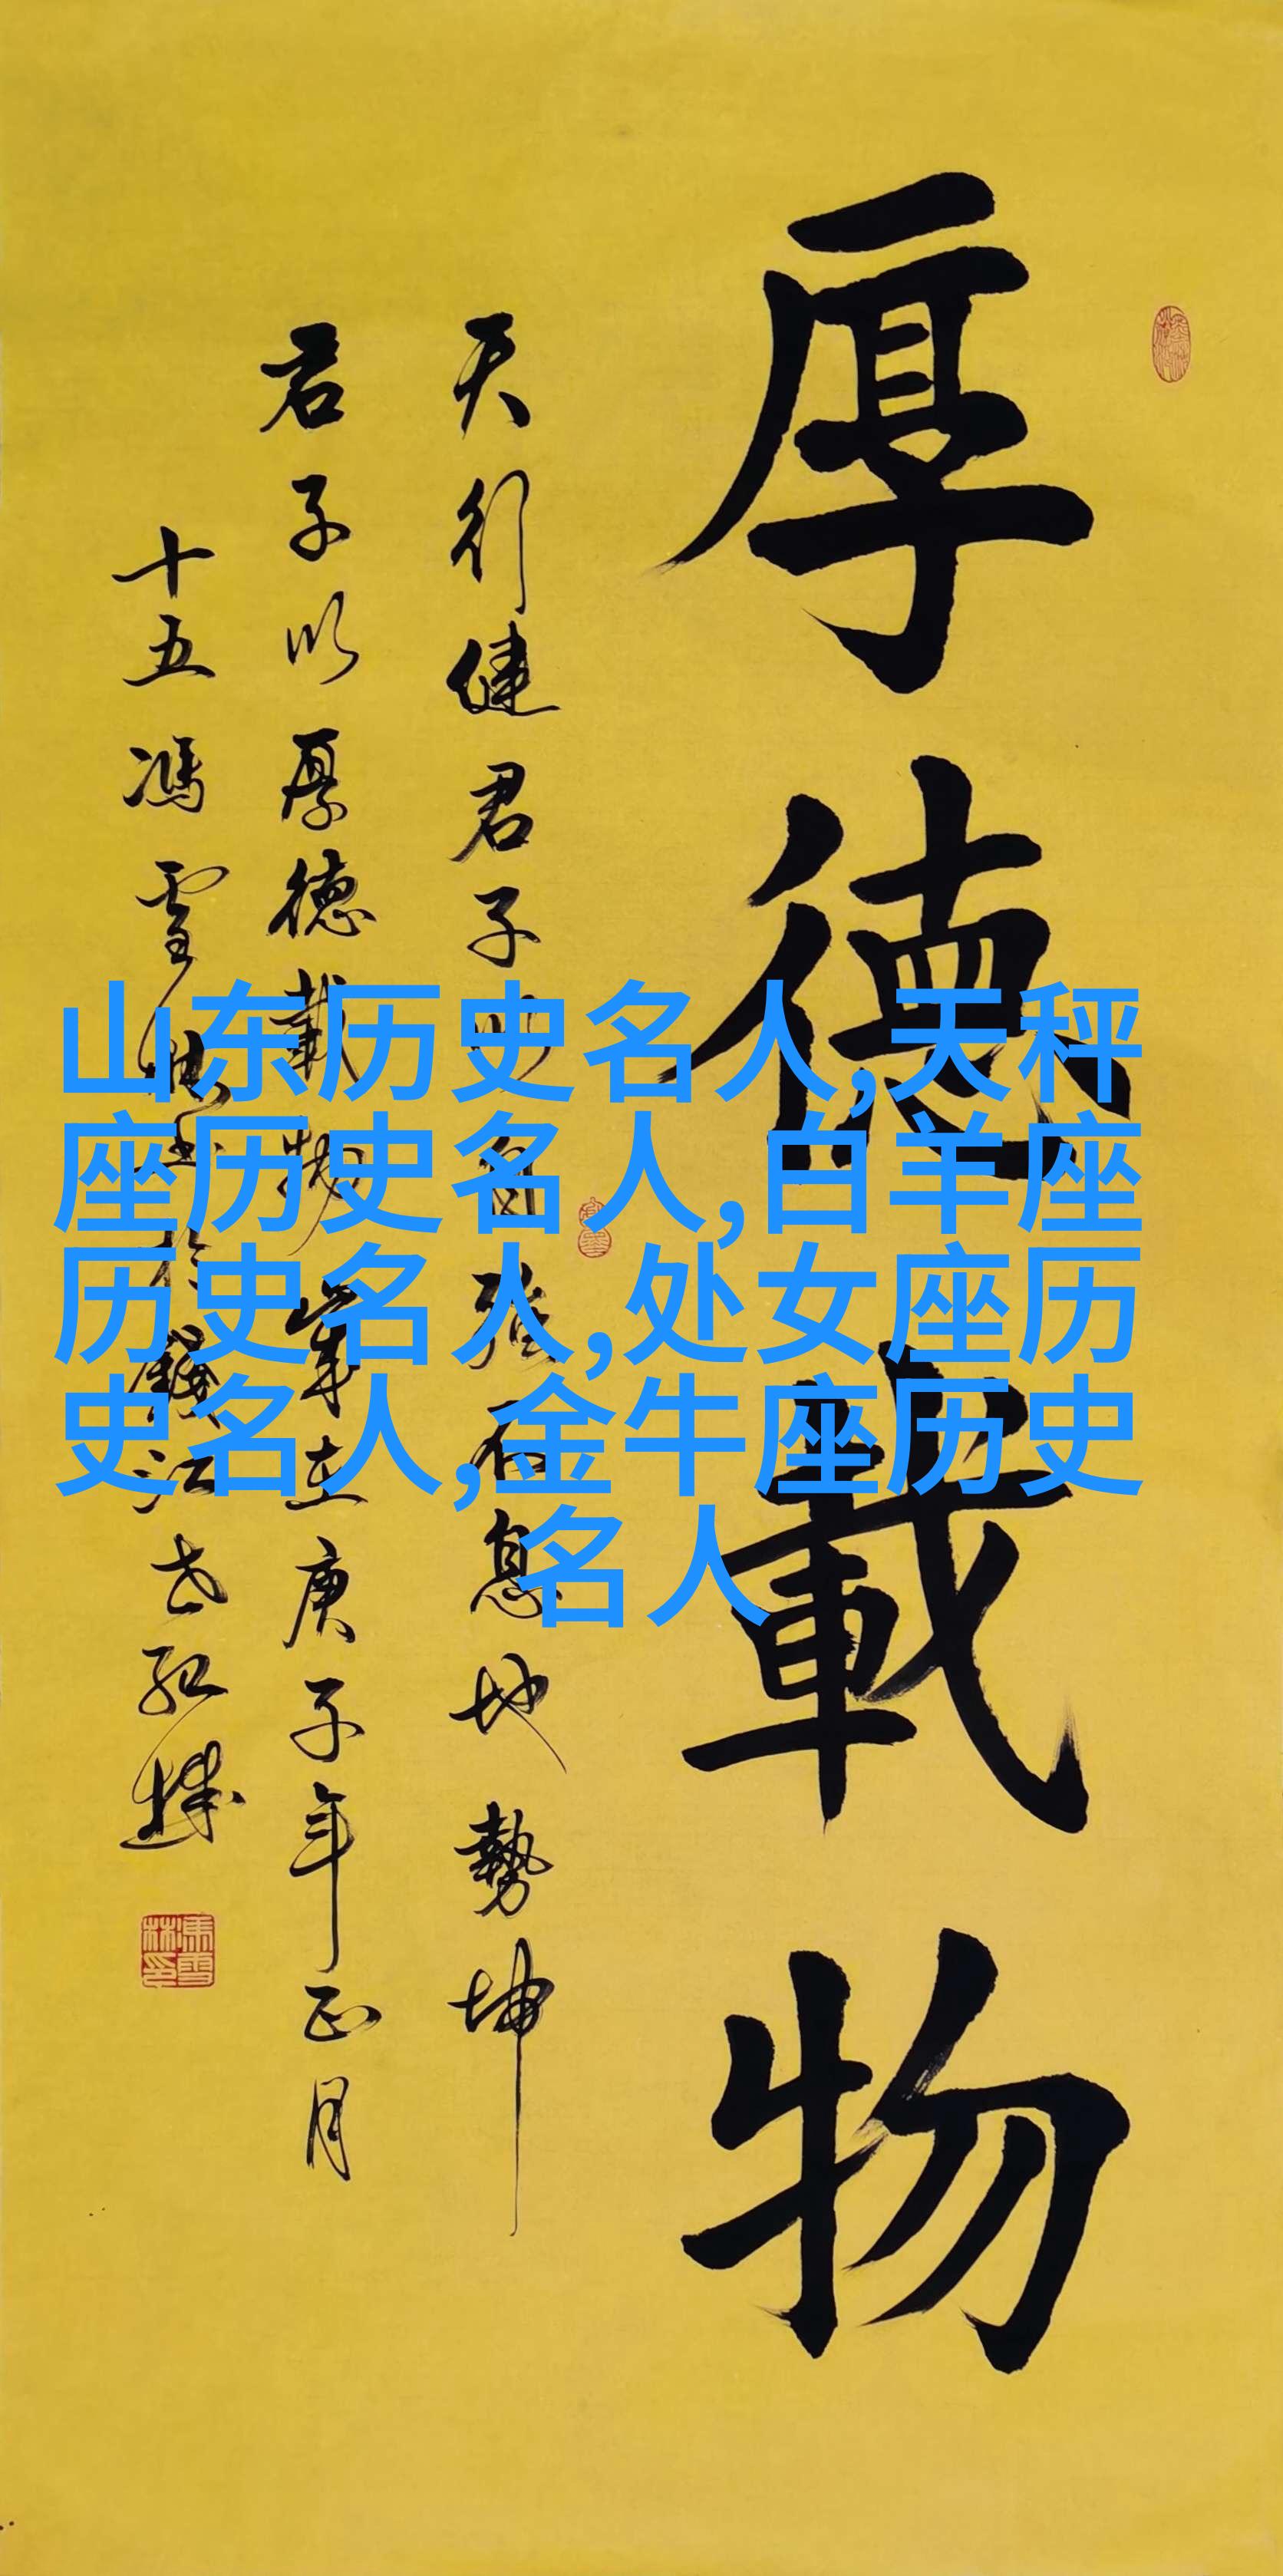 厚德載物
天行健君子以自強不息地勢坤
君子以厚德載物 歲在庚子年正月
十五馮雪林書於錢江
山东历史名人,天秤
座历史名人,白羊座
历史名人,处女座历
史名人,金牛座历史
名人
馮雪林印